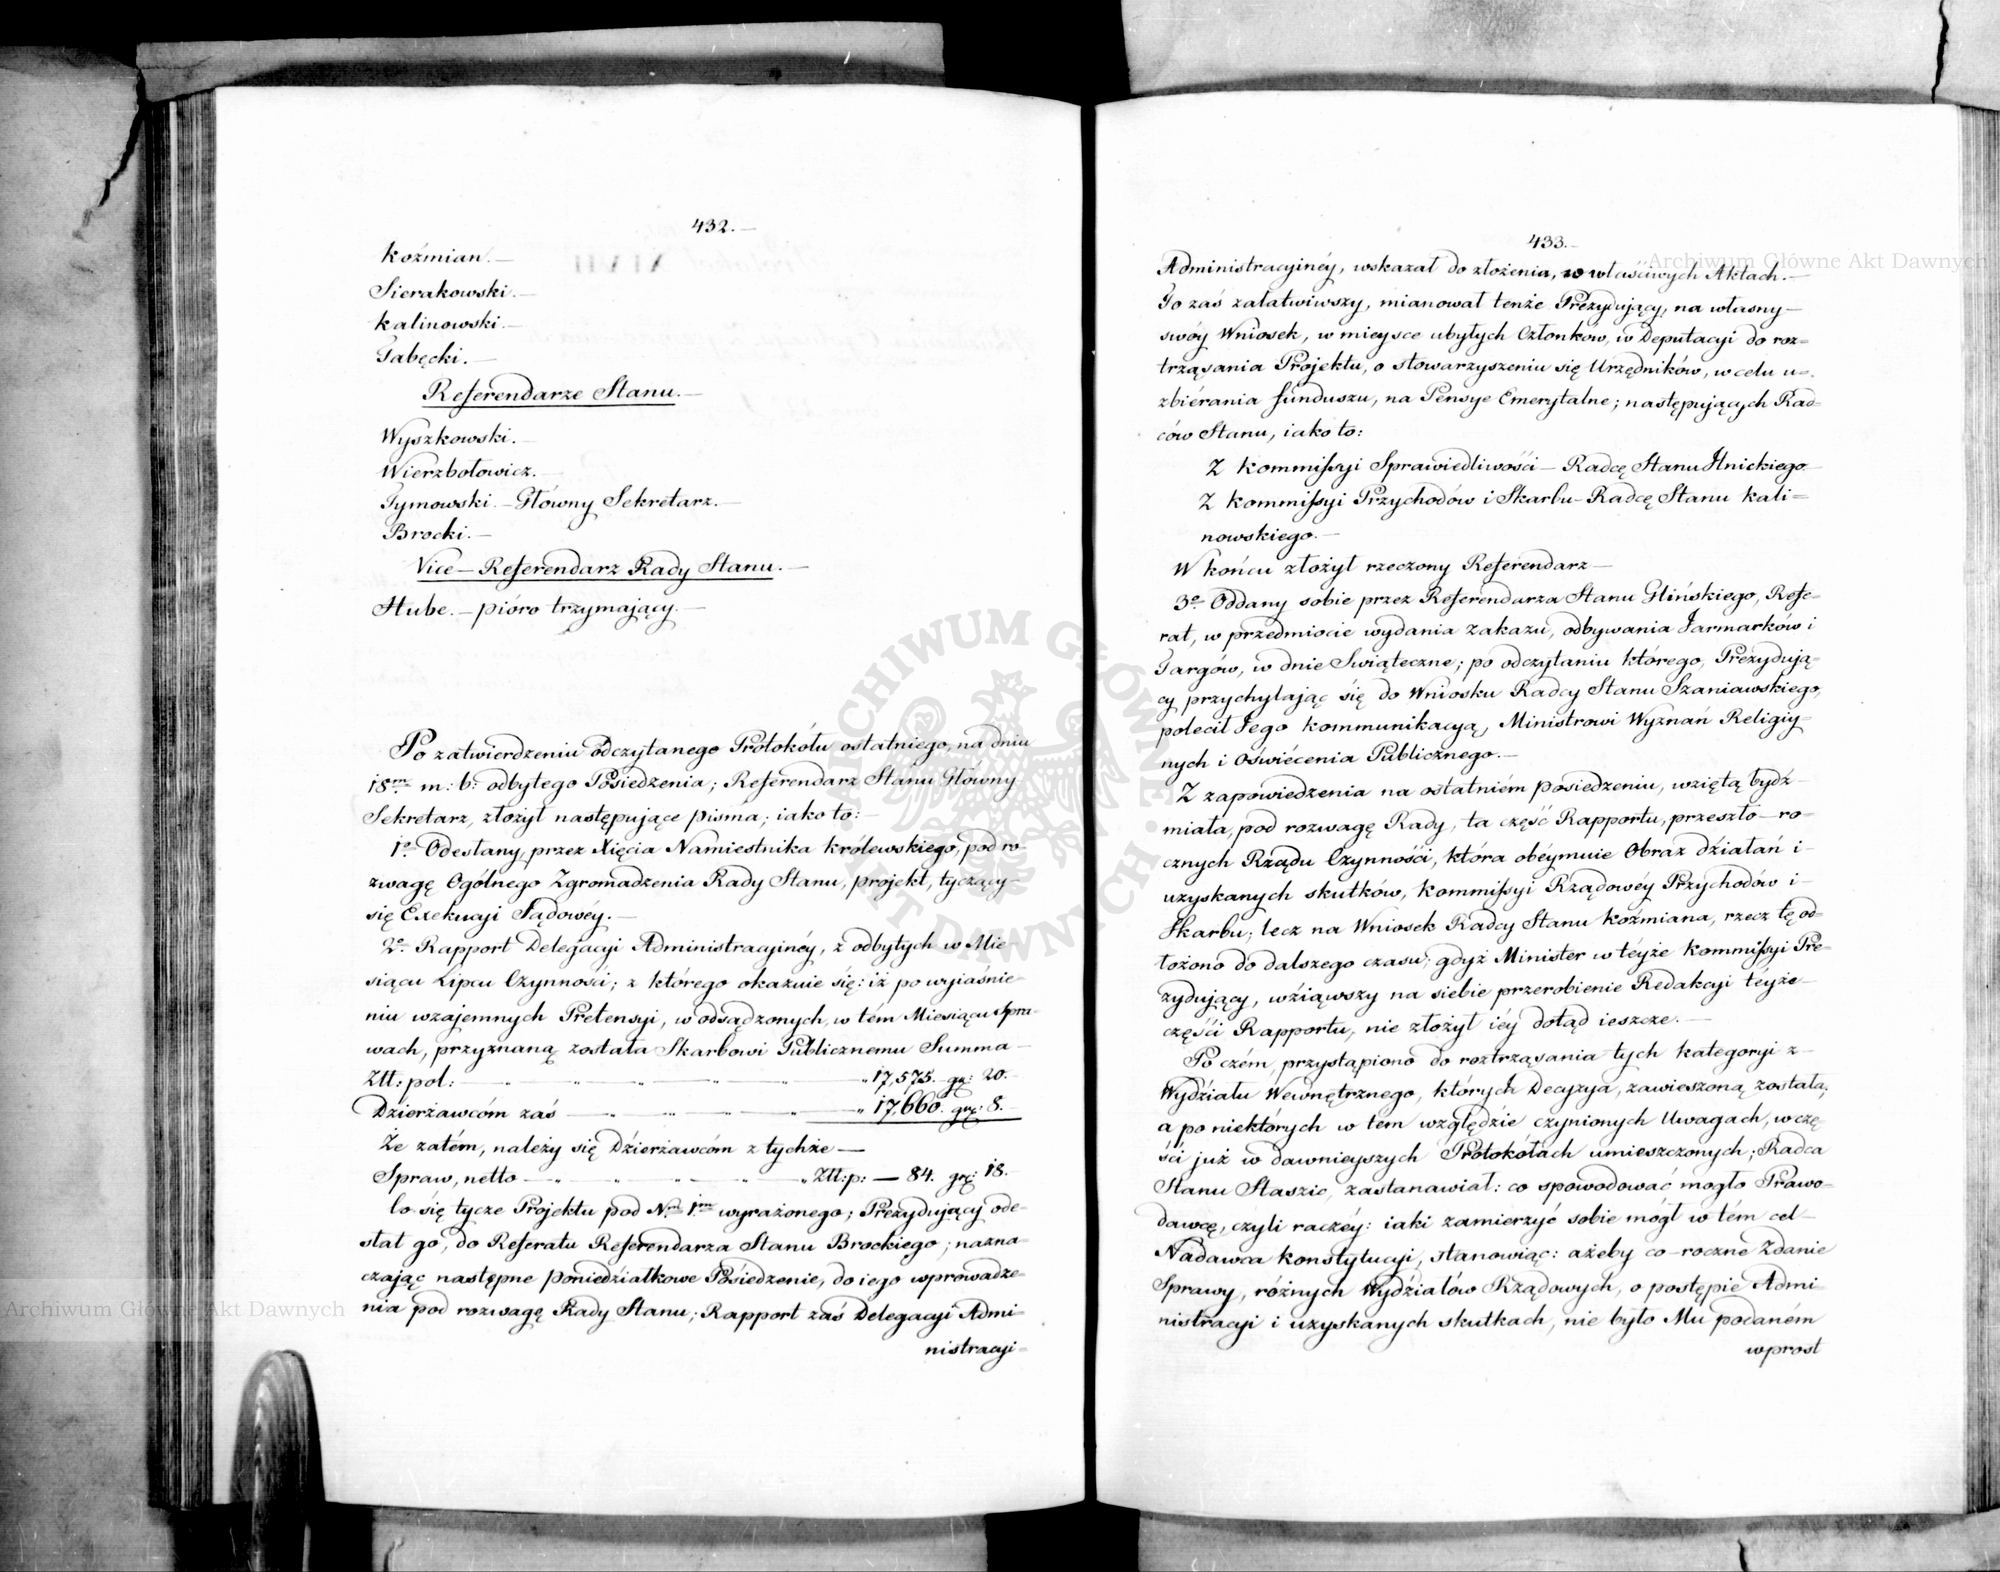 432.—
Koźmian.—
Sierakowski.—
Kalinowski.—
Gabęcki.—
Referendarze Stanu.—
Wyszkowski.—
Wierzbołowicz.—
Tymowski.—Główny Sekretarz.—
Brocki.—
Vice—Referendarz Rady Stanu.—
Hube.—pióro trzymający.—
Po zatwierdzeniu odczytanego Protokółu ostatniego, na dniu
18m m: b: odbytego Posiedzenia; Referendarz Stanu Główny
Sekretarz, złożył następujące pisma; iako to:—
1o Odesłany, przez Xięcia Namiestnika Królewskiego, pod ro-
zwagę Ogólnego Zgromadzenia Rady Stanu, projekt, tyczący—
się Exekucyi Sądowéy.—
2o Rapport Delegacyi Administracyinéy, z odbytych w Mie-
siącu Lipcu Czynności; z którego okazuie się: iż po wyiaśnie-
niu wzajemnych Pretensyi, w odsądzonych, w tém Miesiącu Spra-
wach, przyznaną została Skarbowi Publicznemu Summa—
Złt: pol: — „ — „ — „ — „ 17,575. gr: 20.
Dzierżawcóm zaś — „ — „ — „ — „ 17,660. gr: 8.
Że zatém, należy się Dzierżawcóm z tychże—
Spraw, netto — „ — „ — „ — „ Złt: p: — 84. gr: 18.
Co się tycze Projektu pod Nrm 1m wyrażonego; Prezydujący ode-
słał go, do Referatu Referendarza Stanu Brockiego; nazna-
czając następne poniedziałkowe Posiedzenie, do iego wprowadze-
nia pod rozwagę Rady Stanu; Rapport zaś Delegacyi Admi-
nistracyi=
433.—
Administracyinéy, wskazał do złożenia, w właściwych Aktach.—
To zaś załatwiwszy, mianował tenże Prezydujący, na własny—
swóy Wniosek, w mieysce ubyłych Członków, w Deputacyi do roz=
trząsania Projektu, o stowarzyszeniu się Urzędników, w celu u=
zbiérania funduszu, na Pensye Emerytalne; następujących Rad=
ców Stanu, iako to:
Z Kommissyi Sprawiedliwości—Radcę Stanu Ilnickiego
Z Kommissyi Przychodów i Skarbu—Radcę Stanu Kali=
nowskiego.—
W końcu złożył rzeczony Referendarz—
3o Oddany sobie przez Referendarza Stanu Glińskiego, Refe-
rat, w przedmiocie wydania zakazu, odbywania Jarmarków i
Targów, w dnie Swiąteczne; po odczytaniu którego, Prezydują-
cy przychylając się do Wniosku Radcy Stanu Szaniawskiego,
polecił Jego kommunikacyą, Ministrowi Wyznań Religiy-
nych i Oświécenia Publicznego.—
Z zapowiedzenia na ostatniém posiedzeniu, wziętą bydź—
miała, pod rozwagę Rady, ta część Rapportu, przeszło—ro-
cznych Rządu Czynności, która obéymuie Obraz działań i—
uzyskanych skutków, Kommissyi Rządowéy Przychodów i—
Skarbu; lecz na Wniosek Radcy Stanu Koźmiana, rzecz tę od-
łożono do dalszego czasu; gdyż Minister w téyże Kommissyi Pre-
zydujący, wziąwszy na siebie przerobienie Redakcyi téyże—
części Rapportu, nie złożył iéy dotąd ieszcze.—
Po czém, przystąpiono do roztrząsania tych kategoryi z—
Wydziału Wewnętrznego, których Decyzya, zawieszoną została;
a po niektórych w tem względzie czynionych Uwagach, w czę-
ści już w dawnieyszych Protokółach umieszczonych; Radca
Stanu Staszic, zastanawiał: co spowodować mogło Prawo-
dawcę, czyli raczéy: iaki zamierzyć sobie mógł w tém cel—
Nadawca Konstytucyi, stanowiąc: ażeby co-roczne Zdanie
Sprawy, różnych Wydziałów Rządowych, o postępie Admi-
nistracyi i uzyskanych skutkach, nie było Mu podaném
wprost
Archiwum Główne Akt Dawnych
Archiwum Główne Akt Dawnych
ARCHIWUM GŁÓWNE AKT DAWNYCH